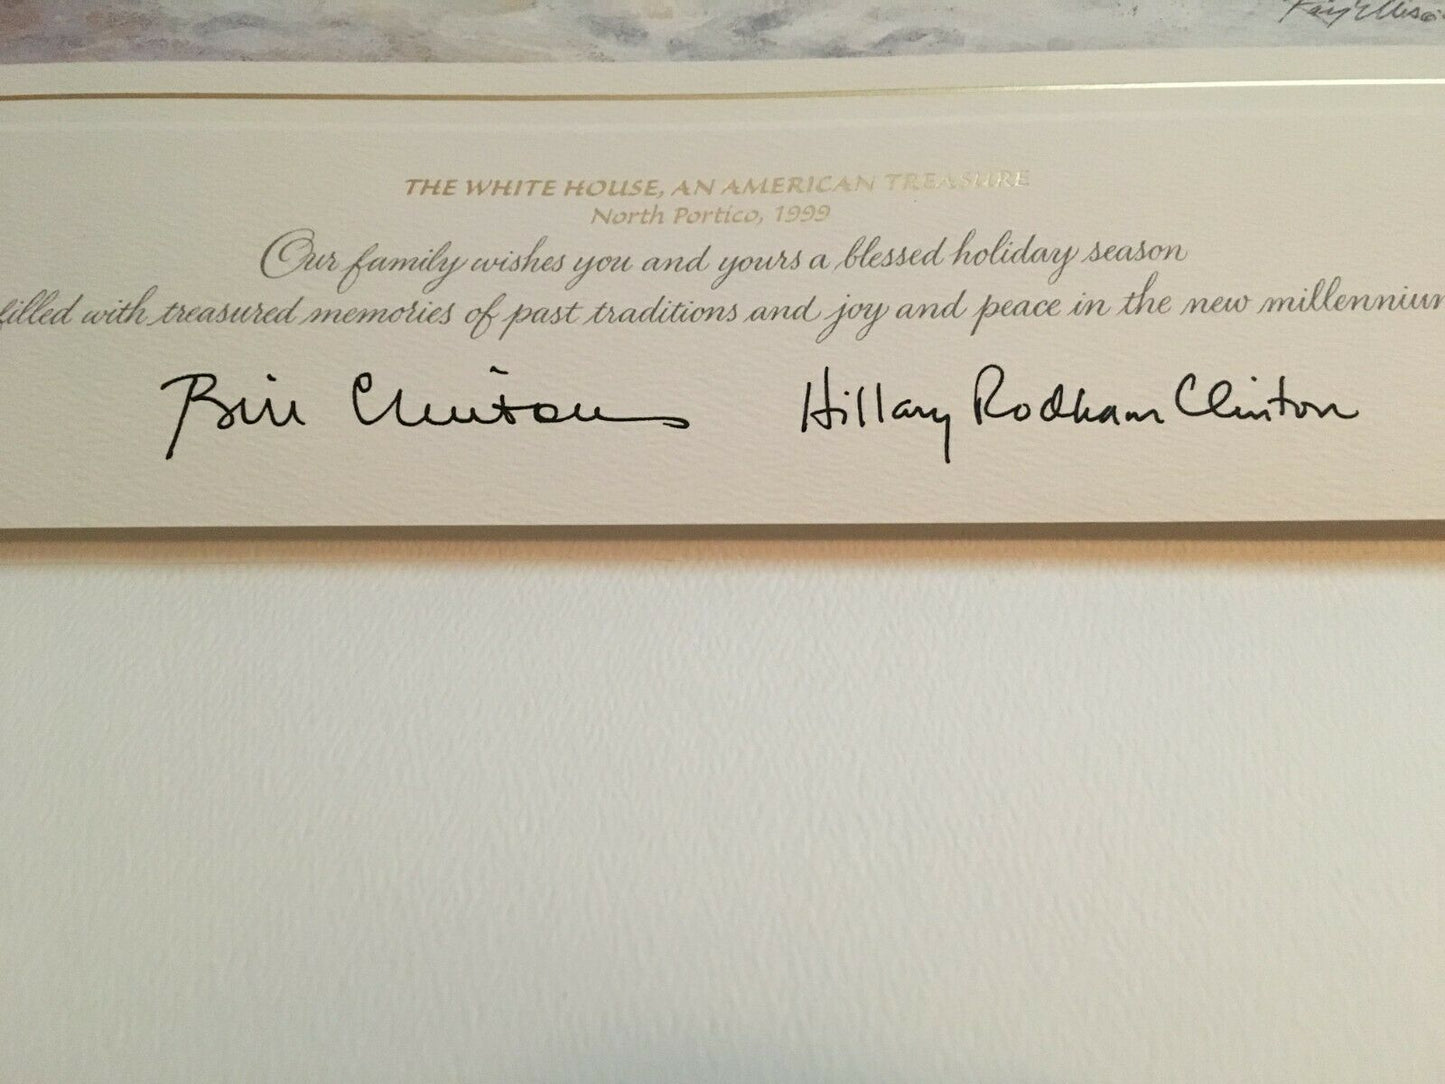 THE WHITE HOUSE, AN AMERICAN TREASURE
North Portico, 1999
Our family wishes you and yours a blessed holiday season
filled with treasured memories of past traditions and joy and peace in the new millennium
Bill Clinton Hillary Rodham Clinton